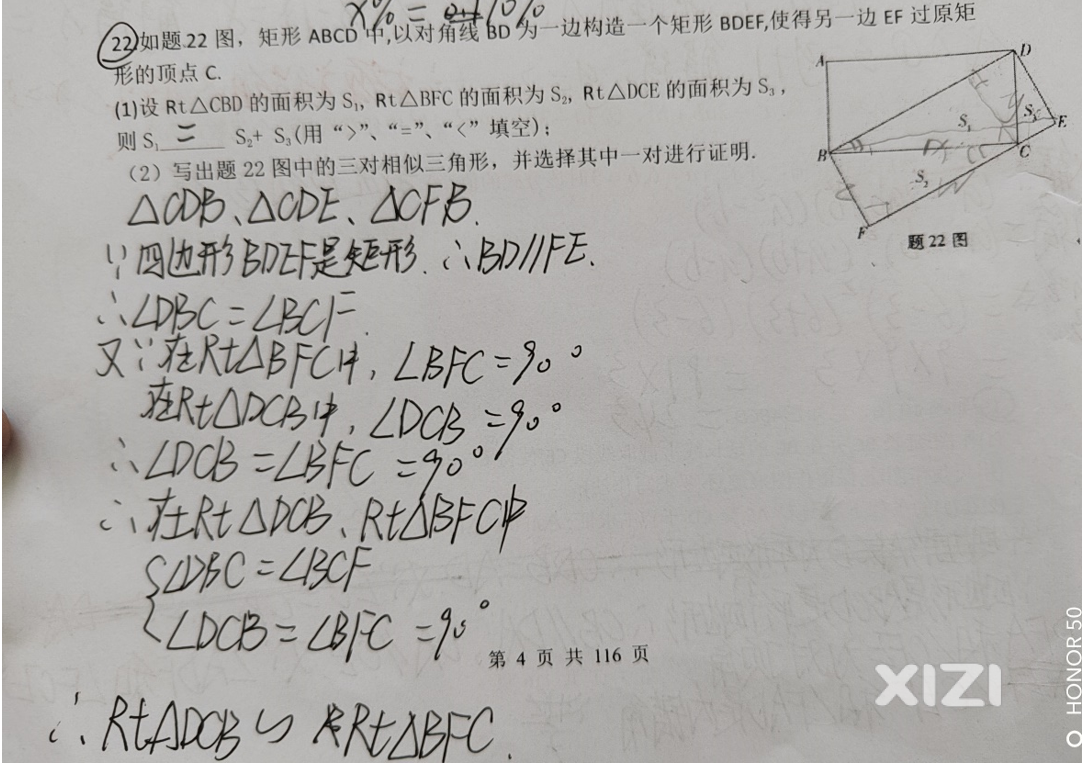 x% =
22.如题22图，矩形 ABCD 中,以对角线 BD 为一边构造一个矩形 BDEF,使得另一边 EF 过原矩
形的顶点 C.
(1)设 Rt△CBD 的面积为 S₁, Rt△BFC 的面积为 S₂, Rt△DCE 的面积为 S₃，
则 S₁ = S₂+ S₃(用“>”、“=”、“<”填空)；
（2）写出题 22 图中的三对相似三角形，并选择其中一对进行证明.
A D
S₁ S₃ E
B C
S₂
F
题 22 图
△CDB、△CDE、△CFB.
∵四边形BDEF是矩形.∴BD//FE.
∴∠DBC=∠BCF.
又∵在Rt△BFC中，∠BFC=90°
在Rt△DCB中，∠DCB=90°
∴∠DCB=∠BFC=90°
∴在Rt△DCB、Rt△BFC中
{∠DBC=∠BCF
∠DCB=∠BFC=90°
第 4 页 共 116 页
∴Rt△DCB∽Rt△BFC.
XIZI
HONOR 50